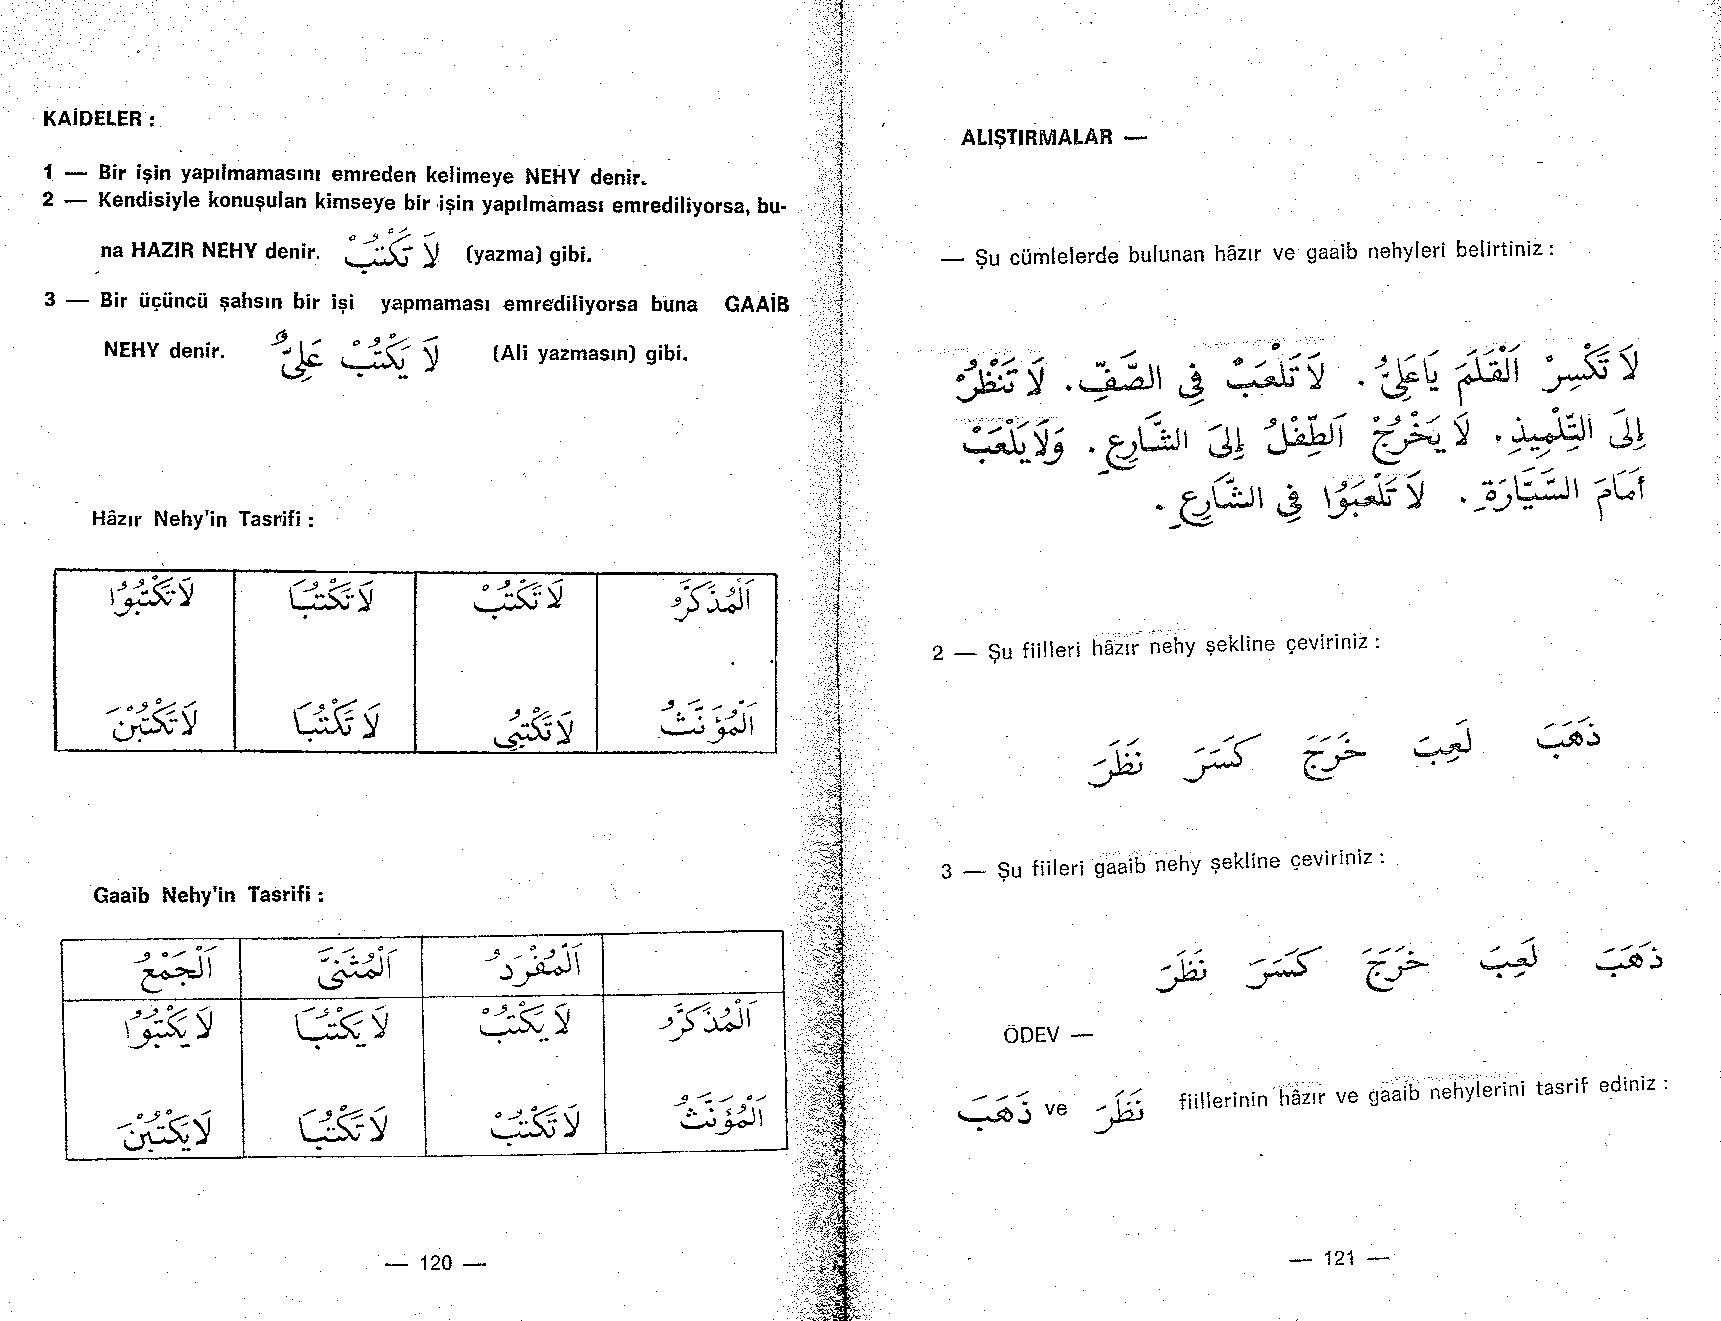 KAİDELER :
1 — Bir işin yapılmamasını emreden kelimeye NEHY denir.
2 — Kendisiyle konuşulan kimseye bir işin yapılmaması emrediliyorsa, bu-
na HAZIR NEHY denir. لَا تَكْتُبْ (yazma) gibi.
3 — Bir üçüncü şahsın bir işi yapmaması emrediliyorsa buna GAAİB
NEHY denir. لَا يَكْتُبْ عَلِىٌّ (Ali yazmasın) gibi.
Hâzır Nehy'in Tasrifi :
اَلْمُذَكَّرُ لَا تَكْتُبْ لَا تَكْتُبَا لَا تَكْتُبُوا
اَلْمُؤَنَّثُ لَا تَكْتُبِى لَا تَكْتُبَا لَا تَكْتُبْنَ
Gaaib Nehy'in Tasrifi :
اَلْمُفْرَدُ اَلْمُثَنَّى اَلْجَمْعُ
اَلْمُذَكَّرُ لَا يَكْتُبْ لَا يَكْتُبَا لَا يَكْتُبُوا
اَلْمُؤَنَّثُ لَا تَكْتُبْ لَا تَكْتُبَا لَا يَكْتُبْنَ
— 120 —
ALIŞTIRMALAR —
— Şu cümlelerde bulunan hâzır ve gaaib nehyleri belirtiniz :
لَا تَكْسِرْ اَلْقَلَمَ يَاعَلِىُّ . لَا تَلْعَبْ فِى الصَّفِّ . لَا تَنْظُرْ
إِلَى التِّلْمِيذِ . لَا يَخْرُجْ اَلطِّفْلُ إِلَى الشَّارِعِ . وَلَا يَلْعَبْ
أَمَامَ السَّيَّارَةِ . لَا تَلْعَبُوا فِى الشَّارِعِ .
2 — Şu fiilleri hâzır nehy şekline çeviriniz :
ذَهَبَ لَعِبَ خَرَجَ كَسَرَ نَظَرَ
3 — Şu fiileri gaaib nehy şekline çeviriniz :
ذَهَبَ لَعِبَ خَرَجَ كَسَرَ نَظَرَ
ÖDEV —
ذَهَبَ ve نَظَرَ fiillerinin hâzır ve gaaib nehylerini tasrif ediniz :
— 121 —